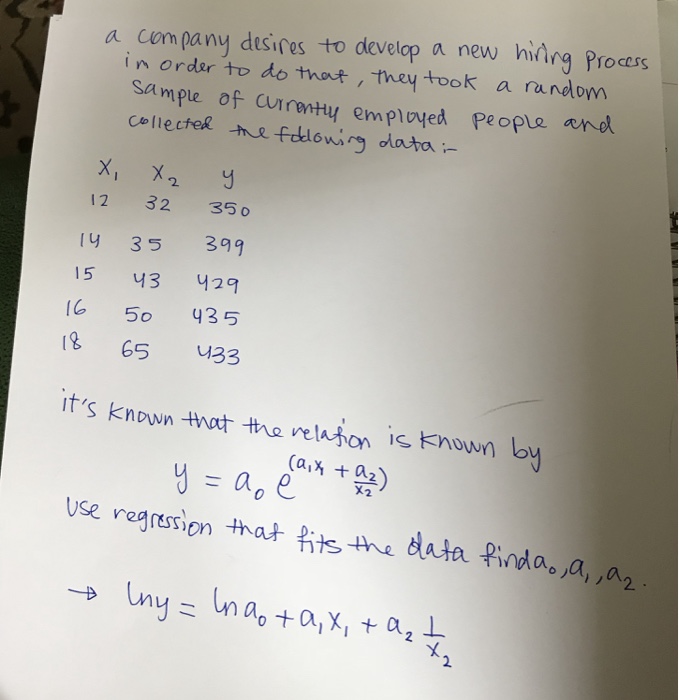 a company desires to develop a new hiring process
in order to do that, they took a random
sample of currently employed people and
collected the following data :-
X₁ X₂ y
12 32 350
14 35 399
15 43 429
16 50 435
18 65 433
it's known that the relation is known by
y = a₀ e^(a₁x₁ + a₂/x₂)
Use regression that fits the data find a₀, a₁, a₂.
→ lny = ln a₀ + a₁x₁ + a₂ 1/x₂